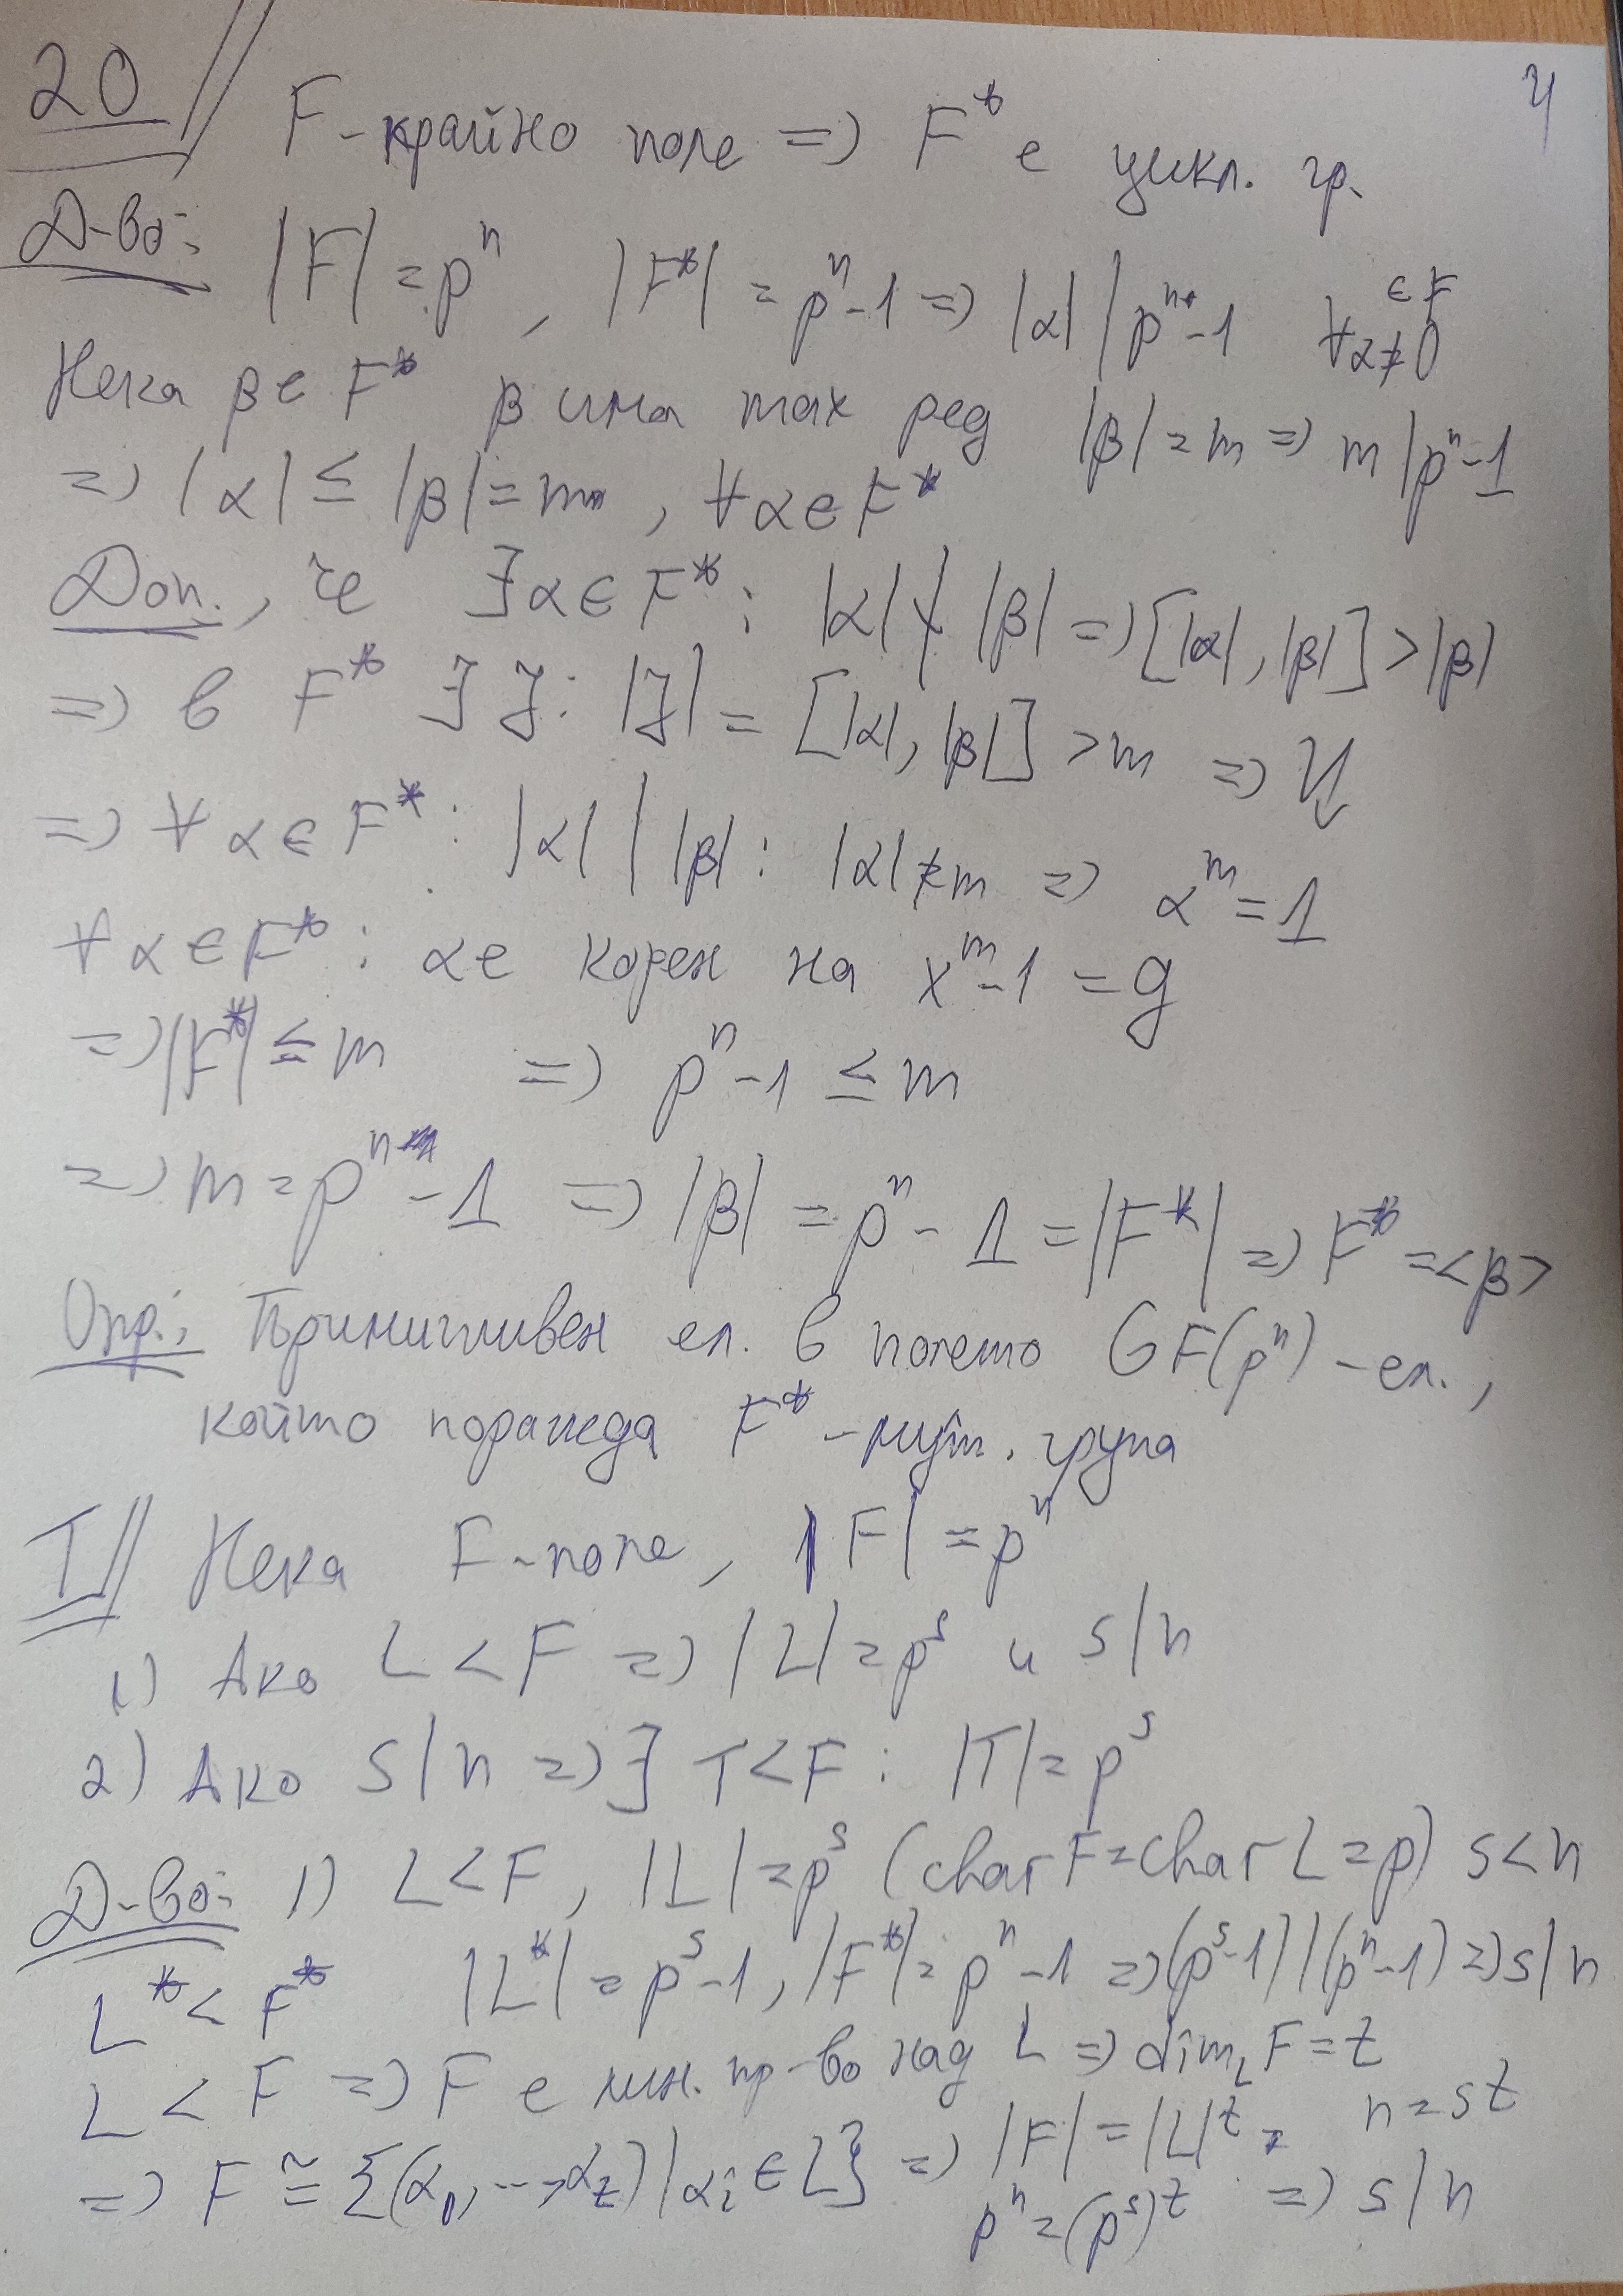 20
4
F - крайно поле => F* е цикл. гр.
Д-во: |F| = pⁿ, |F*| = pⁿ-1 => |α| | pⁿ-1 ∀α≠0 ∈F
Нека β∈F* β има max ред |β| = m => m | pⁿ-1
=> |α| ≤ |β| = m, ∀α∈F*
Доп., че ∃α∈F*: |α| ∤ |β| => [|α|, |β|] > |β|
=> в F* ∃ γ: |γ| = [|α|, |β|] > m =>
=> ∀α∈F*: |α| | |β|: |α| ≠ m => αᵐ = 1
∀α∈F*: α е корен на xᵐ-1 = g
=> |F*| ≤ m => pⁿ-1 ≤ m
=> m = pⁿ-1 => |β| = pⁿ-1 = |F*| => F* = <β>
Опр.: Примитивен ел. в полето GF(pⁿ) - ел.,
който поражда F* - мулт. група
T// Нека F-поле, |F| = pⁿ
1) Ако L < F => |L| = pˢ и s|n
2) Ако s|n => ∃ T<F: |T| = pˢ
Д-во: 1) L<F, |L| = pˢ (char F = char L = p) s<n
L* < F* |L*| = pˢ-1, |F*| = pⁿ-1 => (pˢ-1) | (pⁿ-1) => s|n
L < F => F е лин. пр-во над L => dim_L F = t
=> F ≅ {(α₁, ..., αₜ) | αᵢ ∈ L} => |F| = |L|ᵗ, n = st
pⁿ = (pˢ)ᵗ => s|n